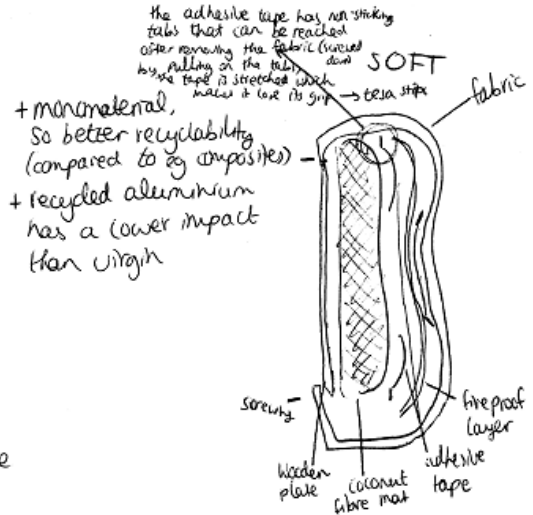 the adhesive tape has non-sticking
tabs that can be reached
after removing the fabric (screwed
down)
by pulling on the tabs,
the tape is stretched which
makes it lose its grip → tesa strips
SOFT
fabric
+ monomaterial,
so better recyclability
(compared to eg composites)
+ recycled aluminium
has a lower impact
than virgin
screwing
wooden
plate
coconut
fibre mat
adhesive
tape
fireproof
layer
e